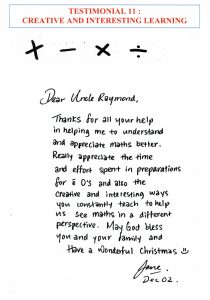 TESTIMONIAL 11 :
CREATIVE AND INTERESTING LEARNING
+ − × ÷
Dear Uncle Raymond,
Thanks for all your help
in helping me to understand
and appreciate maths better.
Really appreciate the time
and effort spent in preparations
for ō O's and also the
creative and interesting ways
you constantly teach to help
us see maths in a different
perspective. May God bless
you and your family and
Have a wonderful Christmas ☺
Jane.
Dec 02.